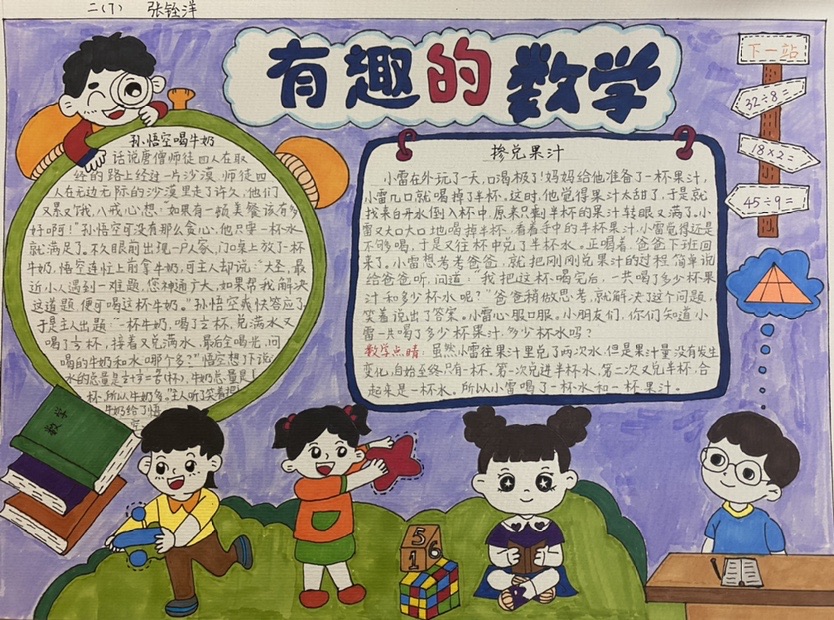 二(7) 张铨洋
有趣的数学
孙悟空喝牛奶
话说唐僧师徒四人在取
经的路上经过一片沙漠.师徒四
人在无边无际的沙漠里走了许久,他们
又累又饿,八戒心想:"如果有一顿美餐该有多
好啊!"孙悟空可没有那么贪心,他只要一杯水
就满足了。不久眼前出现一户人家,门口桌上放了一杯
牛奶,悟空连忙上前拿牛奶,可主人却说:"大圣,最
近小人遇到一难题,您神通广大,如果帮我解决
这道题,便可喝这杯牛奶。"孙悟空爽快答应了
于是主人出题:"一杯牛奶,喝了
杯,兑满水又
喝了
杯,接着又兑满水,最后全喝光,问
喝的牛奶和水哪个多?"悟空想了下说:
水的总量是
牛奶总量是1
杯,所以牛奶多。"主人听了笑着把
牛奶给了悟
空
掺兑果汁
小雷在外玩了一天,口渴极了!妈妈给他准备了一杯果汁,
小雷几口就喝掉了半杯。这时,他觉得果汁太甜了,于是就
找来白开水倒入杯中,原来只剩半杯的果汁转眼又满了。小
雷又大口大口地喝掉半杯,看着手中的半杯果汁,小雷觉得还是
不够喝,于是又往杯中兑了半杯水。正喝着,爸爸下班回
来了。小雷想考考爸爸,就把刚刚兑果汁的过程简单说
给爸爸听,问道:"我把这杯喝完后,一共喝了多少杯果
汁和多少杯水呢?"爸爸稍做思考,就解决了这个问题,
笑着说出了答案。小雷心服口服。小朋友们,你们知道小
雷一共喝了多少杯果汁,多少杯水吗?
数学点睛:虽然小雷往果汁里兑了两次水,但是果汁量没有发生
变化,自始至终只有一杯。第一次兑进半杯水,第二次又兑半杯,合
起来是一杯水。所以小雷喝了一杯水和一杯果汁。
下一站
32÷8=
18×2=
45÷9=
数学
5
1
6